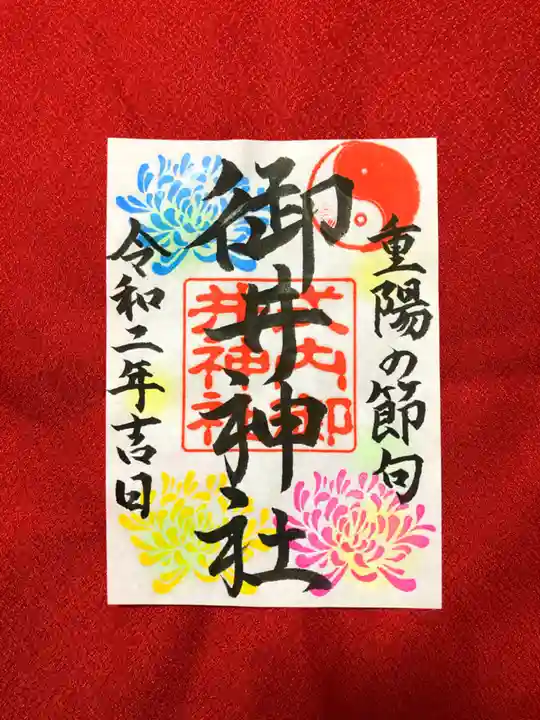 重陽の節句
御井神社
式内郷
井神社
令和二年吉日